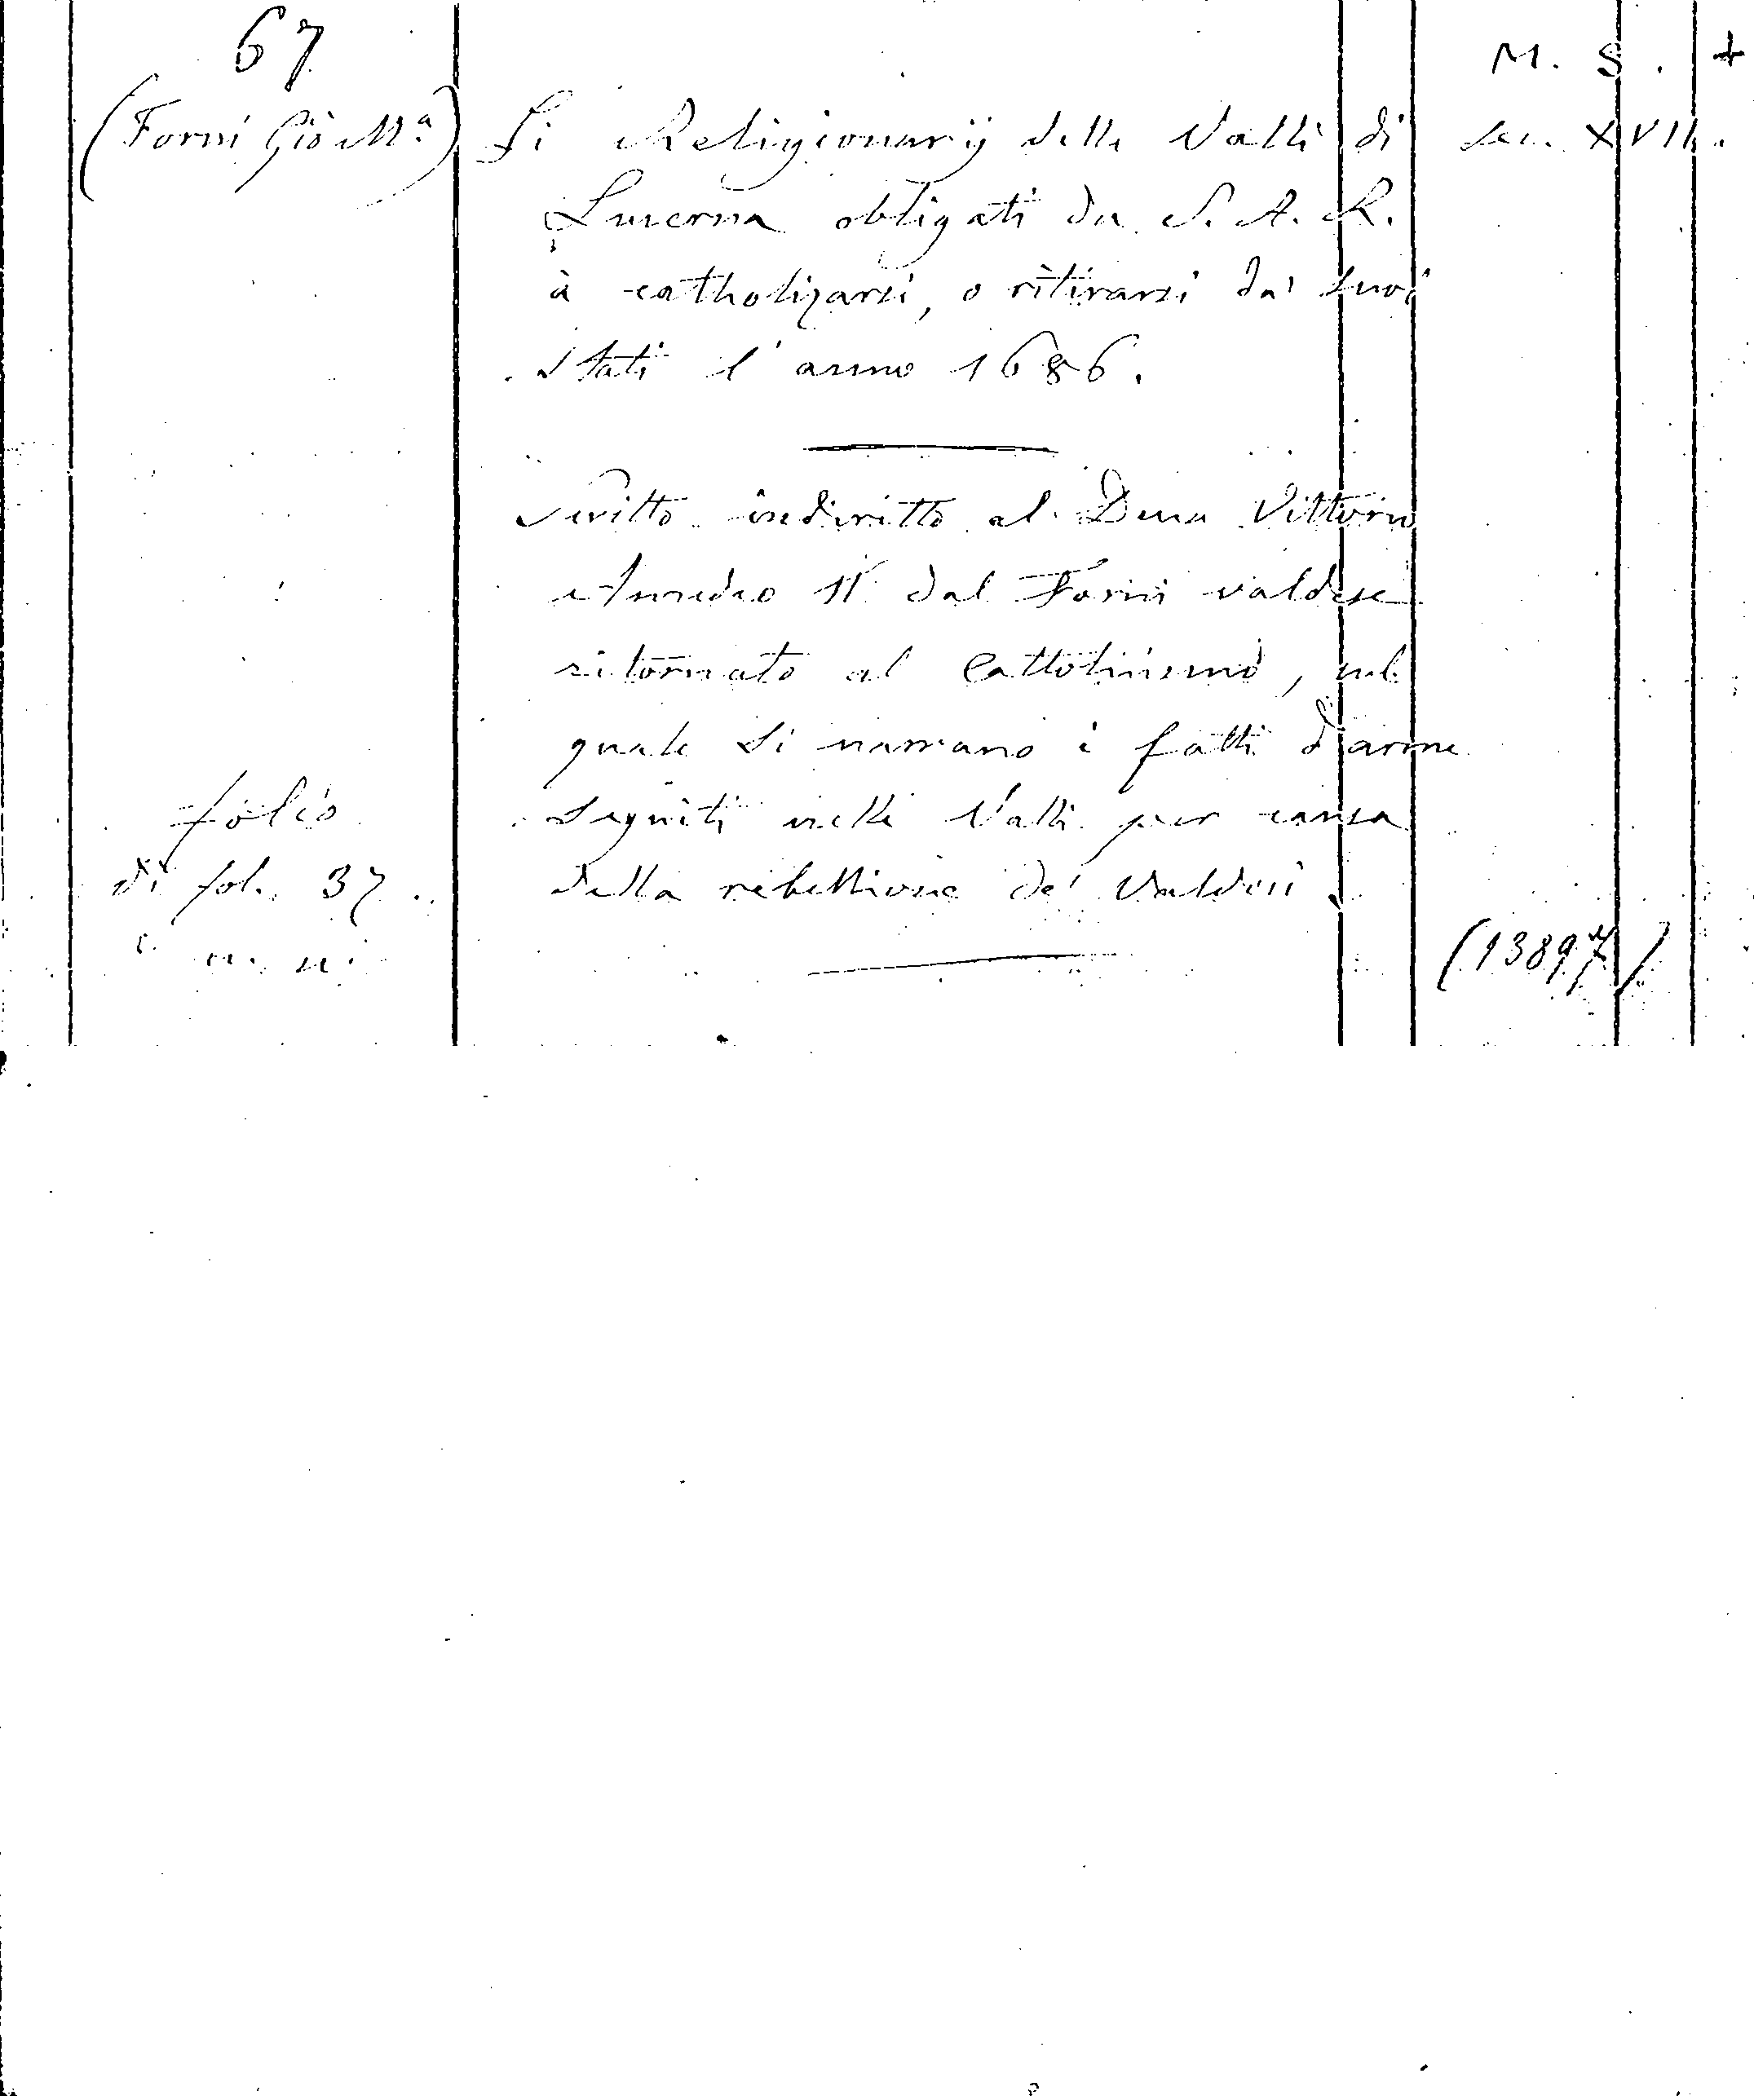 67
M. S. +
(Forni Gio Mª)
Li Religionarij delle Valli di
Sec. XVII.
Lucerna obligati da S. A. R.
à catholizarsi, o ritirarsi da' suoi
Stati l'anno 1686.
Scritto indiritto al Duca Vittorio
Amedeo II dal Forni valdese
ritornato al Cattolicismo, nel
quale si narrano i fatti d'arme
seguiti nelle Valli per causa
della rebellione de' Valdesi.
folio
di fol. 37.
(13897)